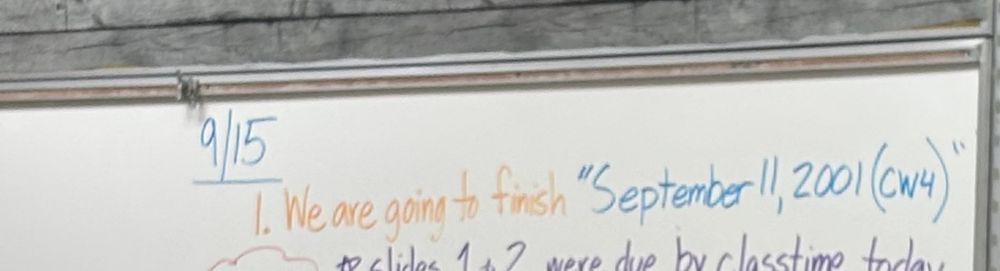 9/15
1. We are going to finish "September 11, 2001 (CW4)"
to slides 1+2 were due by classtime today